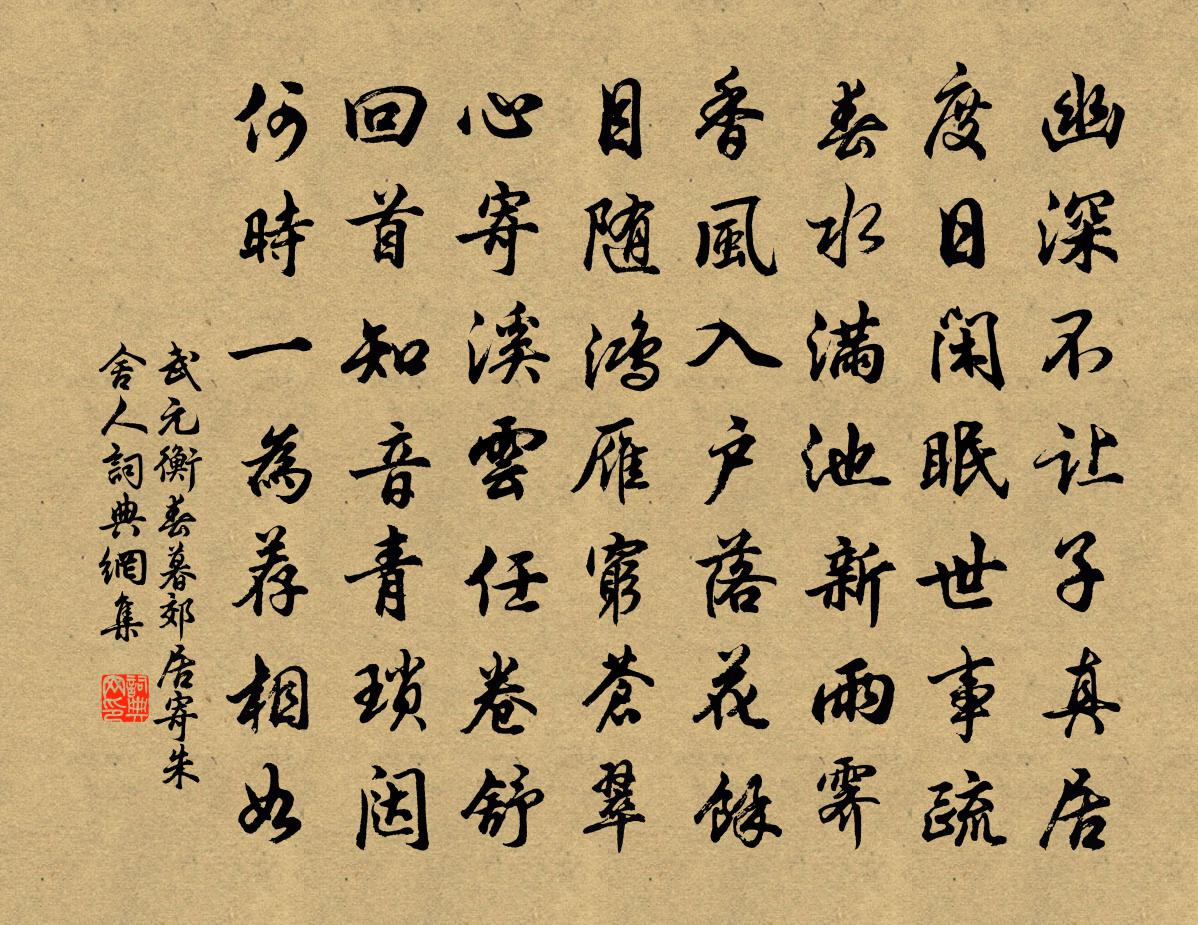 幽深不让子真居
度日閑眠世事疏
春水滿池新雨霽
香風入户落花餘
目随鸿雁窮蒼翠
心寄溪雲任卷舒
回首知音青瑣闼
何時一為荐相如
武元衡春暮郊居寄朱
舍人詞典網集
詞典
网印